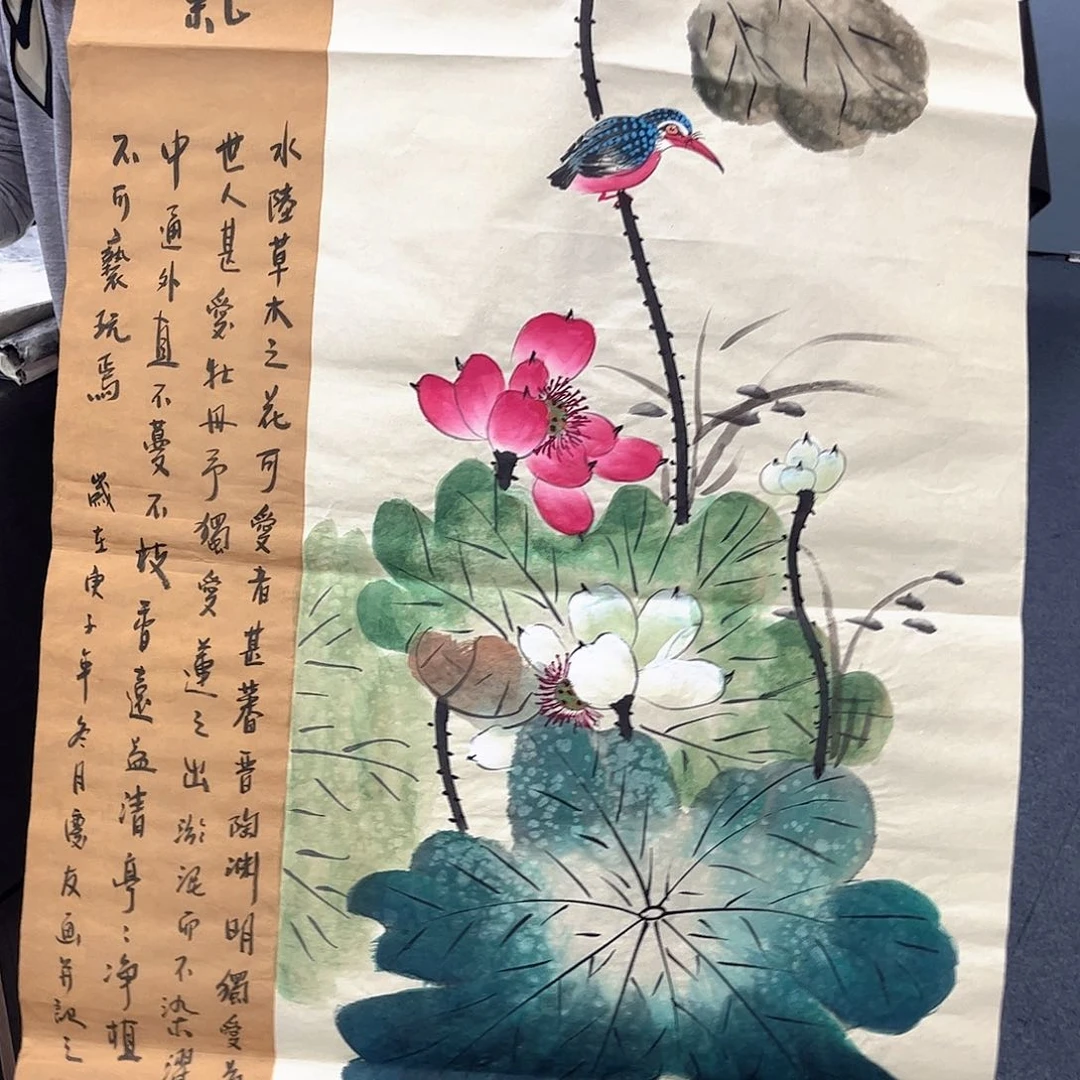 水陸草木之花可愛者甚蕃晉陶渊明獨愛
世人甚愛牡丹予獨愛蓮之出淤泥而不染濯
中通外直不蔓不枝香遠益清亭〻净植
不可褻玩焉 歲在庚子年冬月慶友画并記之